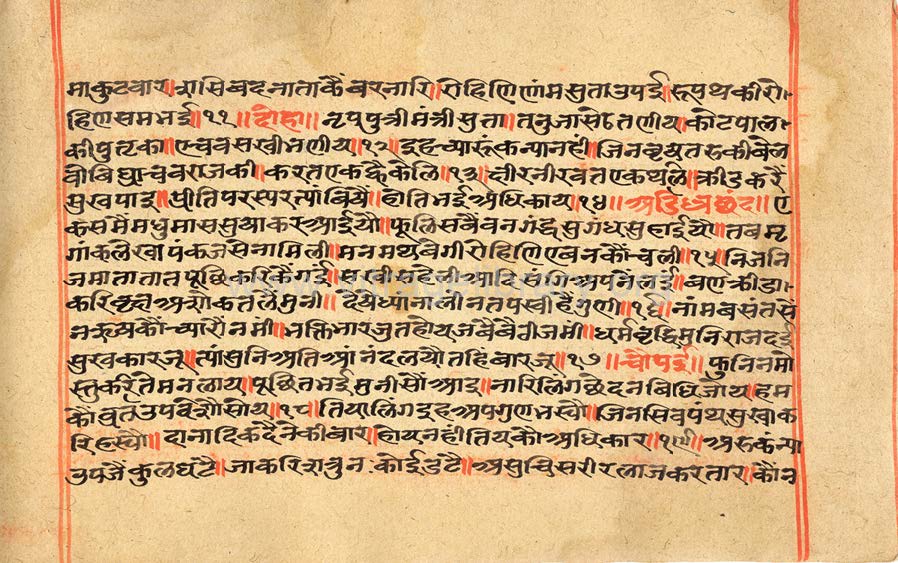 माकुटवार॥रासिबदनाताकैंबरनारि॥रोहिणिनांमसुताउपई॥रूपथकीरो
हिणिसमभई॥११॥दोहा॥नृपपुत्रीमंत्रीसुता॥तनुजासेठतणीय॥कोटपाल
कीपुत्रका॥एच्यवसखीभणीय॥१२॥इहच्यारूकन्यानही॥जिनवृषतरुकीबेल
करतएकठैकेलि॥१३॥षीरनीरवतएकथलै॥क्रीडकरैं
सुखपाइ॥प्रीतिपरस्परत्यांबियैं॥होतिभईअधिकाय॥१४॥अडिल्लछंद॥ए
कसमैंमधुमाससुआकरआईयौ॥फूलिसबैंवनगंहसुगंधसुहाईयौ॥तबमृ
गांकलेखापंकजसेनामिली॥मनमथबेगीरोहिणिएबनकौंचली॥१५॥निजनि
जमातातातपूछिकरिकैंगई॥सखीसहेलीआदिसंगि बणक्रीडा
करिवृछअशोकतलैमुनी॥ लीनतपस्वीहैंगुणी॥१६॥नांमबसंतसे
च्यारौंनमी॥भक्तिभारजुतहोयजबैबैगीजमी॥धर्मवृद्धिमुनिराजदई
सुखकारजू॥त्यांसुनिअतिआंनंदलयौतहिबारजू॥१७॥चौपई॥फुनिनमो
स्तुकरितेमनलाय॥पूछितभईमुनीसौंआइ॥नारिलिंगछेदनबिधिजोय॥हम
कौंवृतउपदैसौसोय॥१८॥तियालिंगइहअपगुणभर्यौ॥जिनसिवपंथसुखाक
रिहर्यौ॥दानादिकदैनेकीबार॥होयनहीतियकौअधिकार॥१९॥अरुकन्या
उपजैंकुलघटै॥जाकरिशत्रुनकोईहटै॥असुचिसरीरलाजकरतार॥कौंन